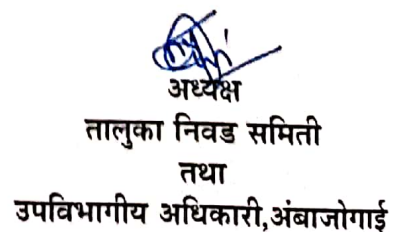 अध्यक्ष
तालुका निवड समिती
तथा
उपविभागीय अधिकारी,अंबाजोगाई